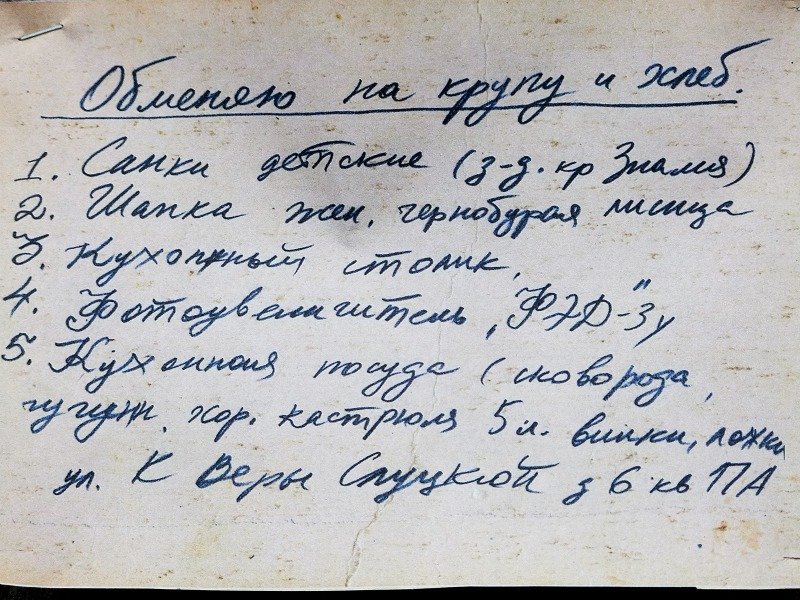 Обменяю на крупу и хлеб.
1. Санки детские (з-д. кр Знамя)
2. Шапка жен. чернобурая лисица
3. Кухонный столик,
4. Фотоувеличитель „ФЭД-"3у
5. Кухонная посуда (сковорода,
чугунн. хор. кастрюля 5л. вилки, ложки
ул. К Веры Слуцкой д 6 кв